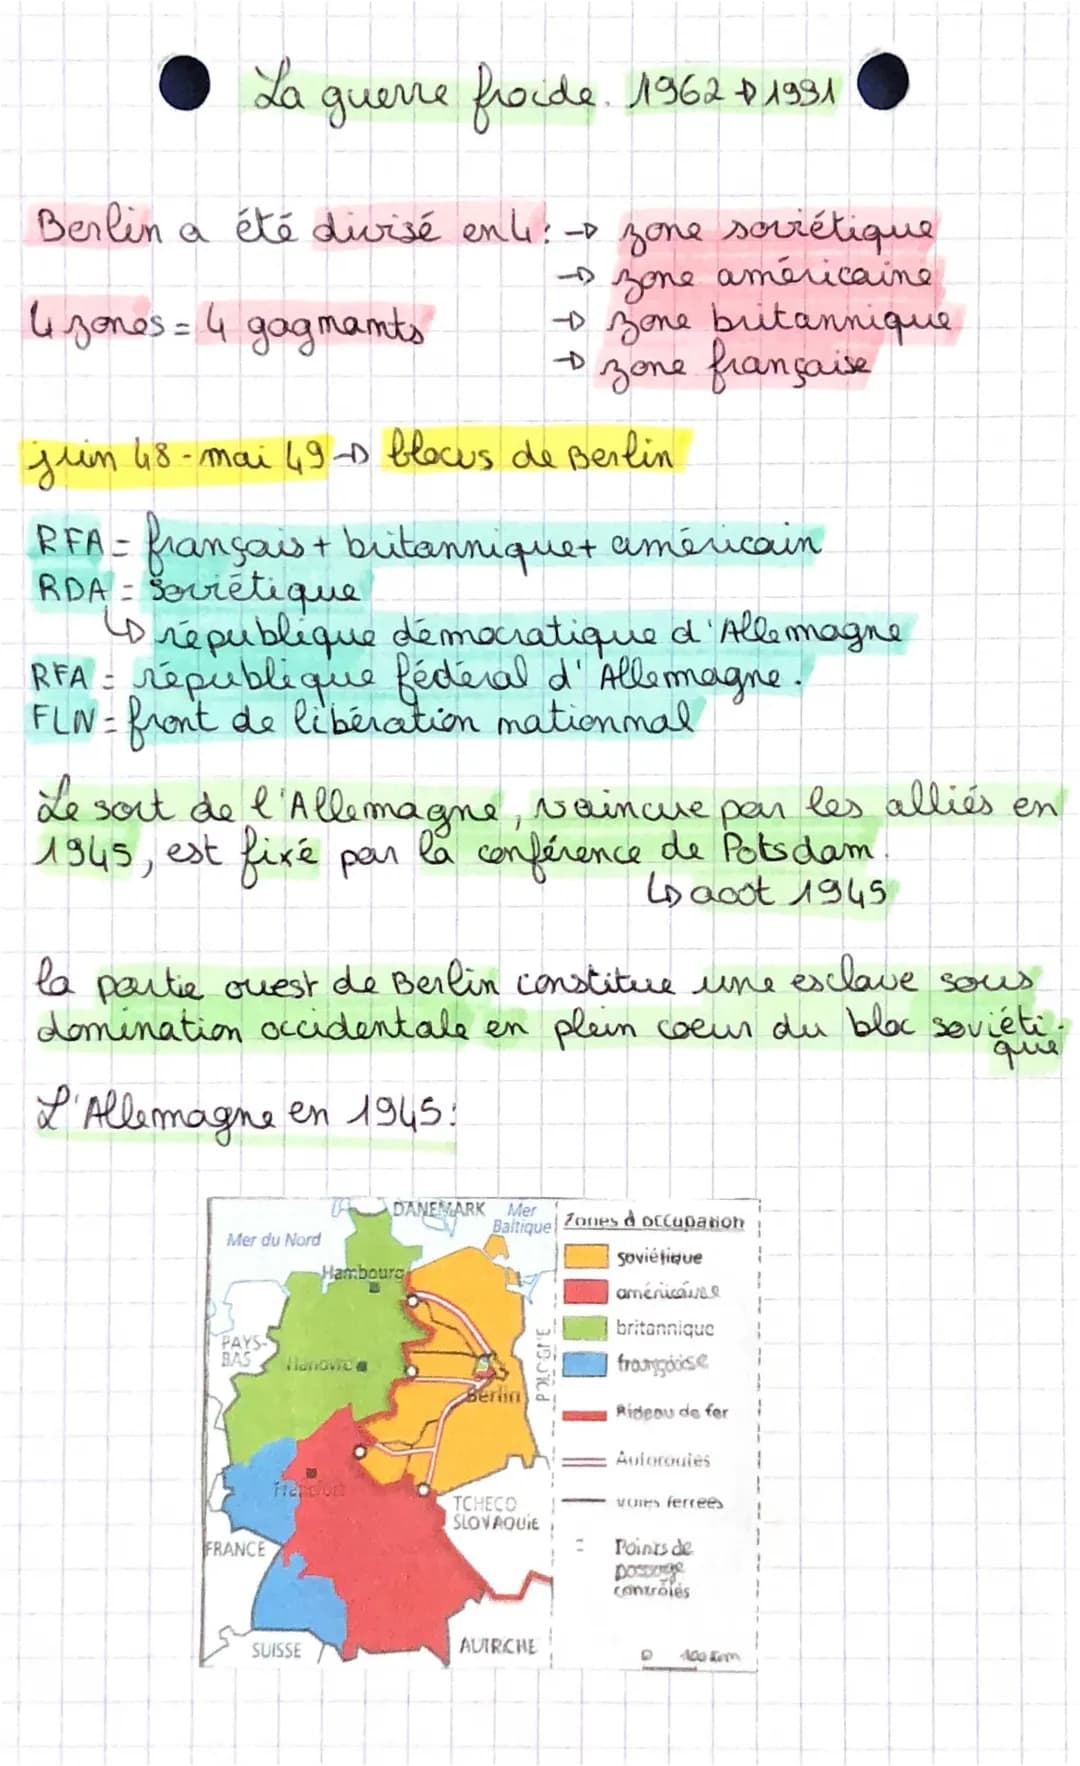 La guerre froide. 1962 → 1991
Berlin a été divisé en 4 : → zone soviétique
→ zone américaine
4 zones = 4 gagmants → zone britannique
→ zone française
juin 48 - mai 49 → blocus de Berlin
RFA = français + britannique + américain
RDA = soviétique
↳ république démocratique d'Allemagne
RFA = république fédéral d'Allemagne.
FLN = front de libération nationmal
Le sort de l'Allemagne, vaincue par les alliés en
1945, est fixé par la conférence de Potsdam.
↳ aoot 1945
la partie ouest de Berlin constitue une esclave sous
domination occidentale en plein coeur du bloc soviéti-
que
L'Allemagne en 1945 :
DANEMARK
Mer
Baltique
Mer du Nord
Hambourg
PAYS-
BAS
Hanovre
Berlin
POLOGNE
Francfort
TCHECO
SLOVAQUIE
FRANCE
SUISSE
AUTRICHE
Zones d'occupation
soviétique
américaine
britannique
française
Rideau de fer
Autoroutes
voies ferrées
Points de
passage
contrôlés
0 100 km